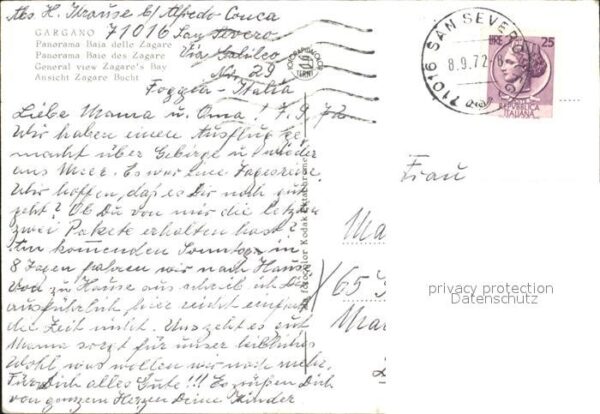 Abs. H. Krause b/ Alfredo Couca
71016 San Severo
GARGANO
Panorama Baia delle Zagare
Panorama Baie des Zagare
General view Zagare's Bay
Ansicht Zagare Bucht
Via Galileo
No. 29
Foggia - Italia
Liebe Mama u. Oma! 7.9.72
Wir haben einen Ausflug ge-
macht über Gebirge u. wieder
ans Meer. Es war eine Tagesreise.
Wir hoffen, daß es Dir noch gut
geht? Ob Du von mir die letzten
zwei Pakete erhalten hast?
Am kommenden Sonntag in
8 Tagen fahren wir nach Haus.
Von zu Hause aus schreib ich Dir
ausführlich, hier reicht einfach
die Zeit nicht. Uns geht es gut
Mama sorgt für unser leibliches
Wohl, was wollen wir noch mehr.
Für Dich alles Gute!!! Es grüßen Dich
von ganzem Herzen Deine Kinder
fotocolor Kodak Ektachrome
71016 SAN SEVERO
8.9.72
LIRE 25
REPUBBLICA
ITALIANA
Frau
Ma
65
Mar
privacy protection
Datenschutz